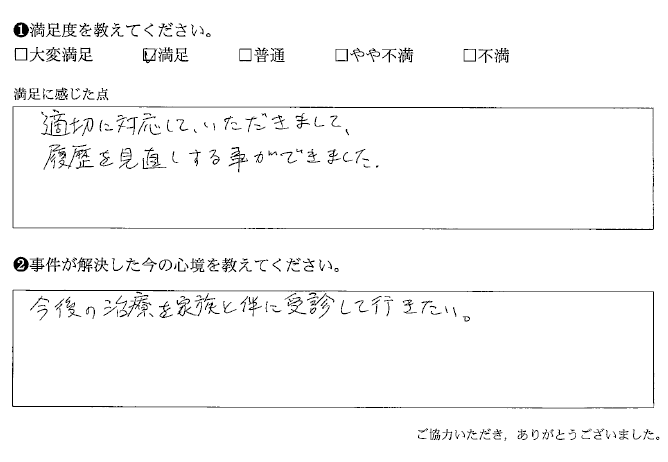 ❶満足度を教えてください。
□大変満足 ☑満足 □普通 □やや不満 □不満
満足に感じた点
適切に対応して、いただきまして、
履歴を見直しする事ができました.
❷事件が解決した今の心境を教えてください。
今後の治療を家族と伴に受診して行きたい。
ご協力いただき，ありがとうございました。